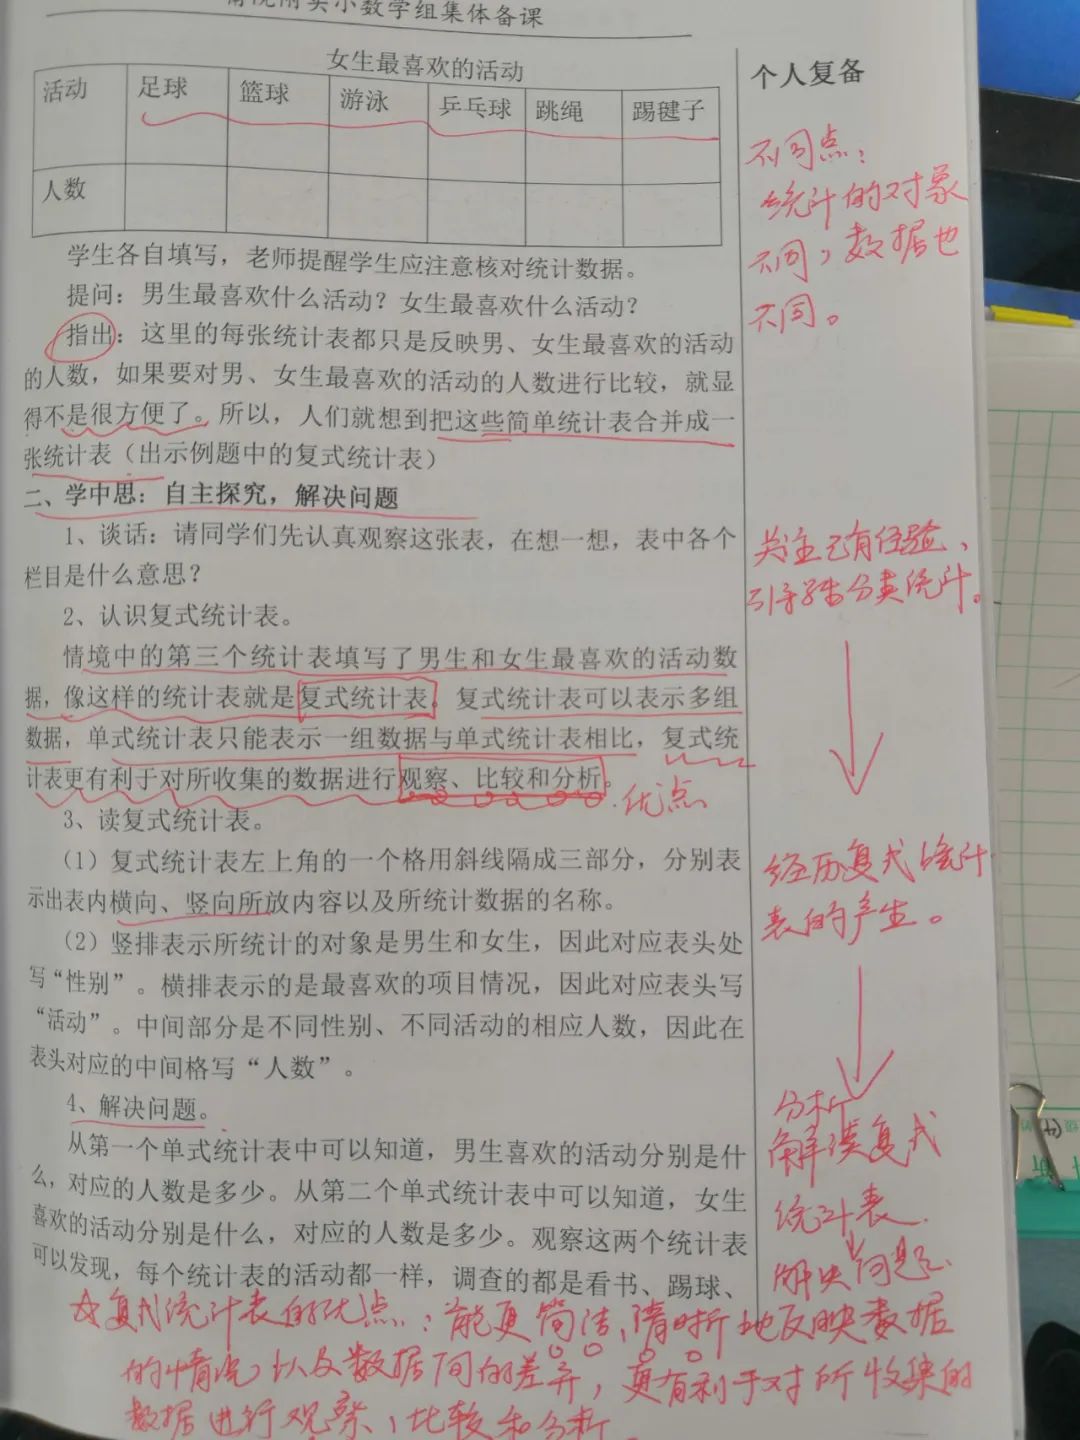 实小数学组集体备课
女生最喜欢的活动
活动 足球 篮球 游泳 乒乓球 跳绳 踢毽子
人数
学生各自填写，老师提醒学生应注意核对统计数据。
提问：男生最喜欢什么活动？女生最喜欢什么活动？
指出：这里的每张统计表都只是反映男、女生最喜欢的活动
的人数，如果要对男、女生最喜欢的活动的人数进行比较，就显
得不是很方便了。所以，人们就想到把这些简单统计表合并成一
张统计表（出示例题中的复式统计表）
二、学中思：自主探究，解决问题
1、谈话：请同学们先认真观察这张表，在想一想，表中各个
栏目是什么意思？
2、认识复式统计表。
情境中的第三个统计表填写了男生和女生最喜欢的活动数
据，像这样的统计表就是复式统计表。复式统计表可以表示多组
数据，单式统计表只能表示一组数据与单式统计表相比，复式统
计表更有利于对所收集的数据进行观察、比较和分析。
优点
3、读复式统计表。
（1）复式统计表左上角的一个格用斜线隔成三部分，分别表
示出表内横向、竖向所放内容以及所统计数据的名称。
（2）竖排表示所统计的对象是男生和女生，因此对应表头处
写“性别”。横排表示的是最喜欢的项目情况，因此对应表头写
“活动”。中间部分是不同性别、不同活动的相应人数，因此在
表头对应的中间格写“人数”。
4、解决问题。
从第一个单式统计表中可以知道，男生喜欢的活动分别是什
么，对应的人数是多少。从第二个单式统计表中可以知道，女生
喜欢的活动分别是什么，对应的人数是多少。观察这两个统计表
可以发现，每个统计表的活动都一样，调查的都是看书、踢球、
☆复式统计表的优点：能更简洁、清晰地反映数据
的情况以及数据间的差异，更有利于对所收集的
数据进行观察、比较和分析。
个人复备
不同点：
统计的对象
不同，数据也
不同。
关注已有经验、
引导学生分类统计。
经历复式统计
表的产生。
分析
解读复式
统计表
解决问题